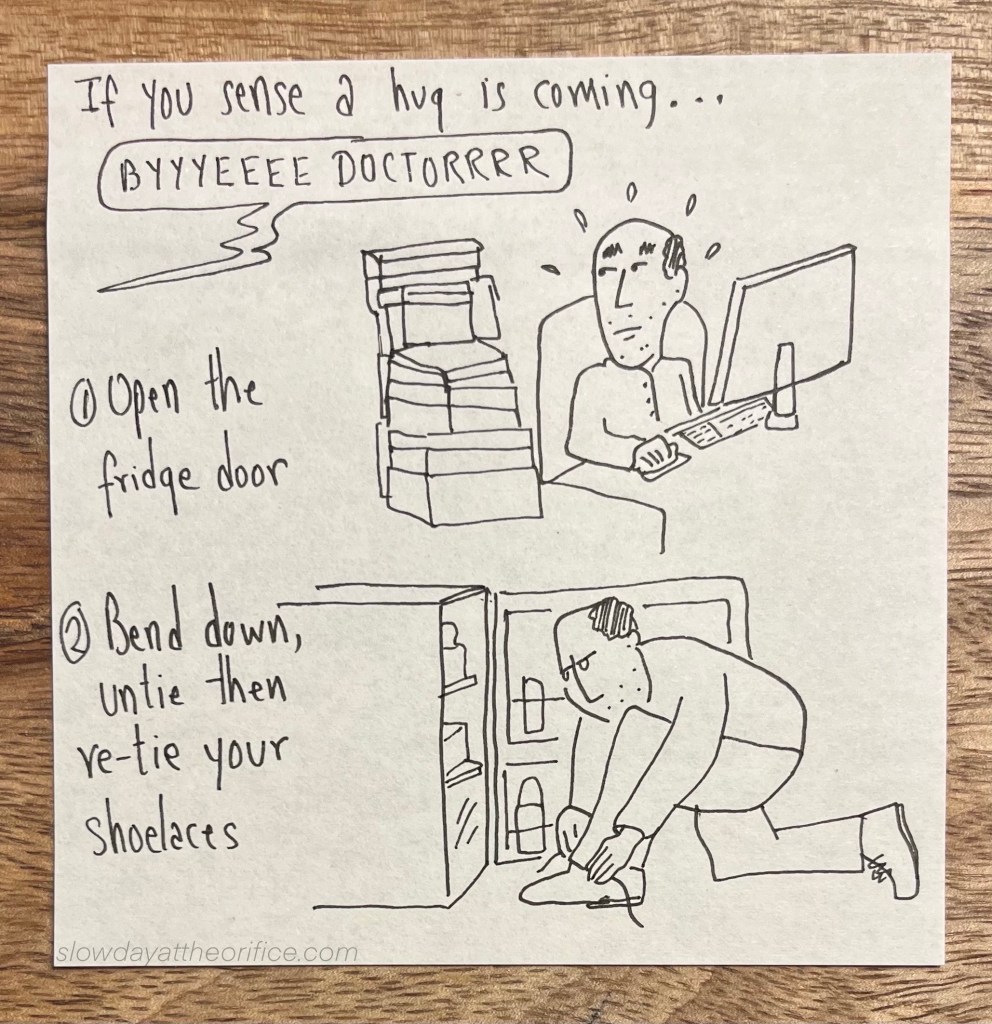 If you sense a hug is coming...
BYYYEEEE DOCTORRRR
① Open the
fridge door
② Bend down,
untie then
re-tie your
shoelaces
slowdayattheorifice.com